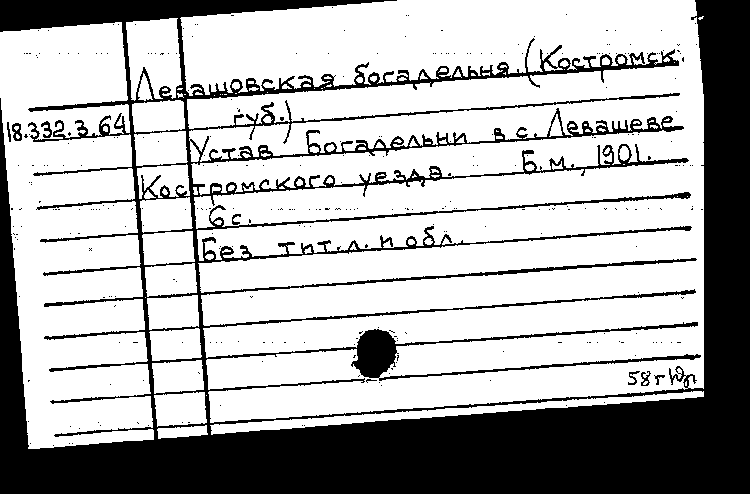 Левашовская богадельня. (Костромск.
губ.).
18.332.3.64
Устав Богадельни в с. Левашеве
Костромского уезда. Б.м., 1901.
6 с.
Без тит. л. и обл.
58 г